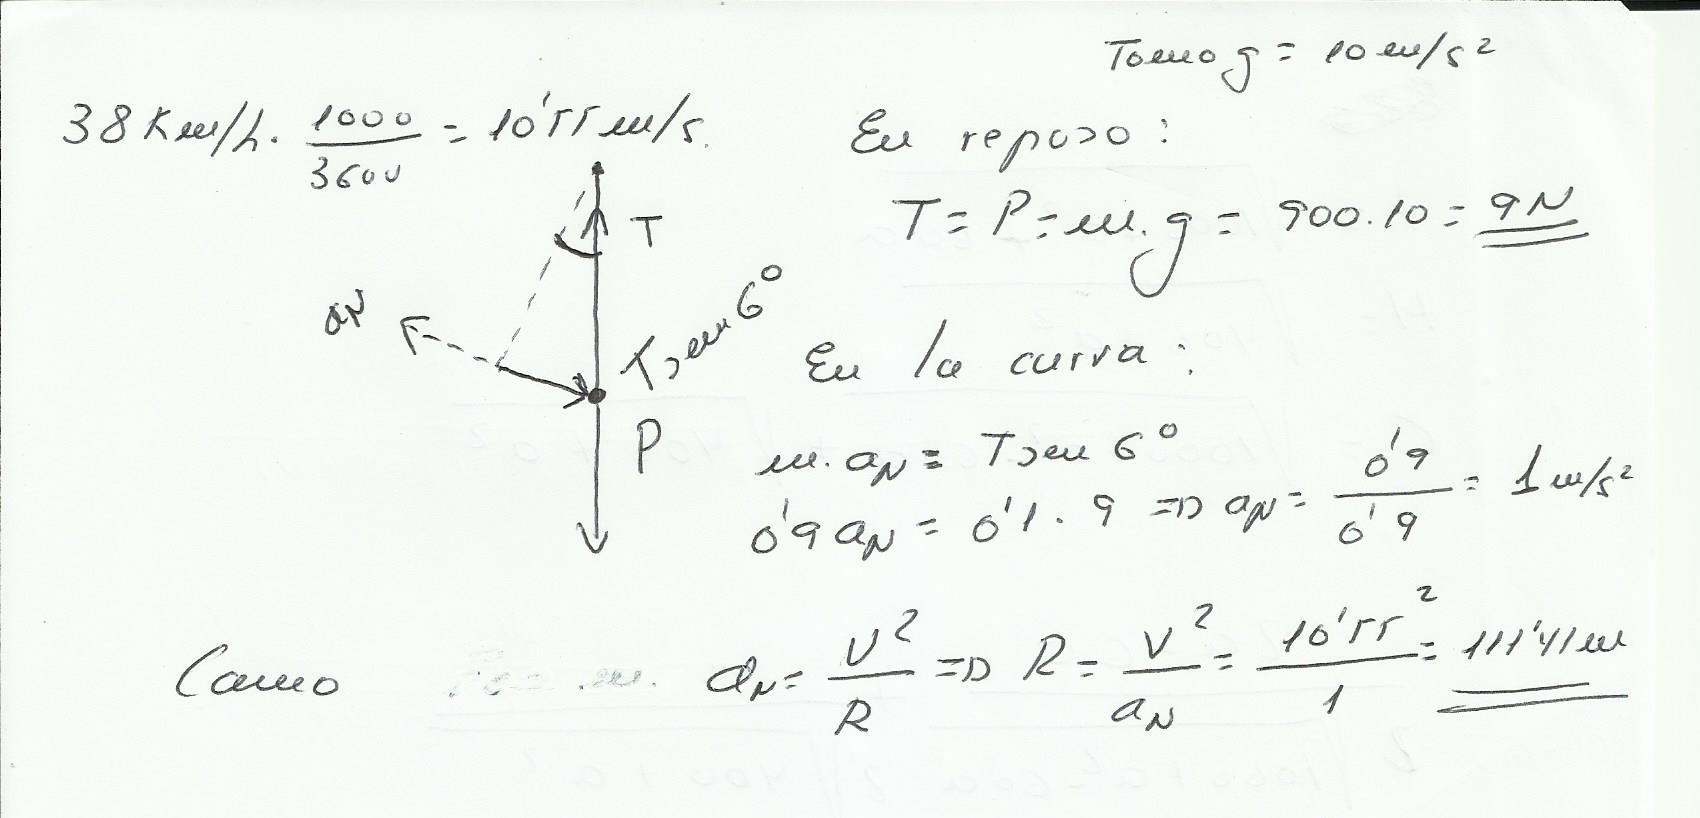 Tomo g = 10 m/s²
38 Km/h. 1000/3600 = 10'55 m/s.
En reposo:
T
T = P = m.g = 900.10 = 9N
aN
T sen 6º
En la curva:
P
m.aN = T sen 6º
0'9 aN = 0'1 . 9 => aN = 0'9/0'9 = 1 m/s²
Como aN = V²/R => R = V²/aN = 10'55²/1 = 111'41 m